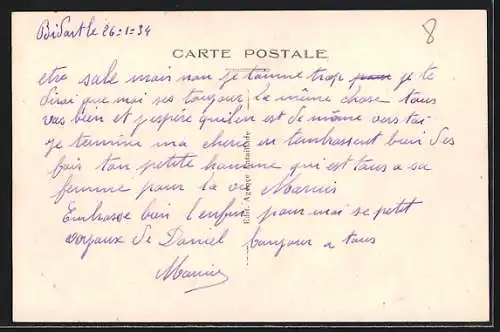 Bidart le 26-1-34
8
CARTE POSTALE
etre sale mais non je tourne trop je te
dirai que moi ses toujour la même chose tous
vas bien et j'espére quil en est de même vers toi
je termine ma cheri en tembrassent bien des
fois ton petite homme qui est tous a sa
femme pour la vie Marius
Embrasse bien l'enfent pour moi se petit
voyaux de Daniel bonjour a tous
Marius
Edit. Agence